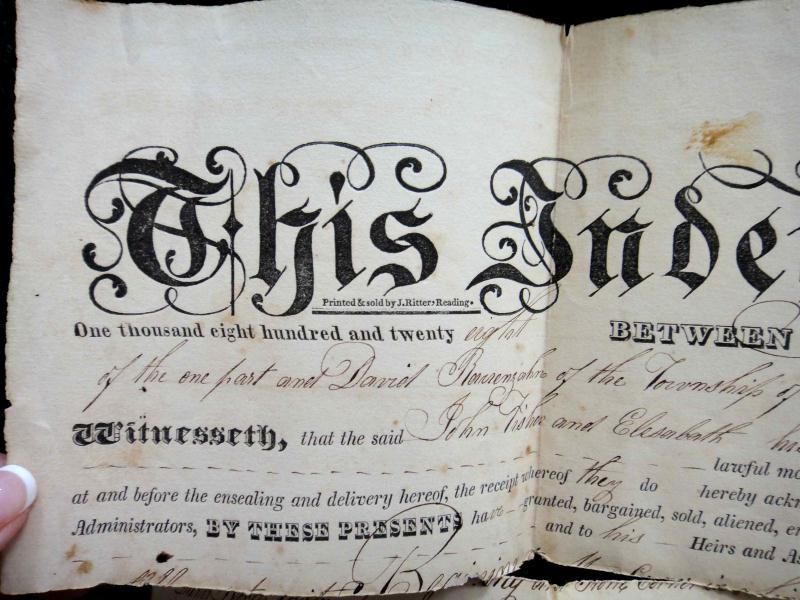 This Inde
Printed & sold by J. Ritter, Reading.
One thousand eight hundred and twenty eight BETWEEN
of the one part and David of the Township of
Witnesseth, that the said John Fisher and Elisabath his
lawful mo
at and before the ensealing and delivery hereof, the receipt whereof they do hereby ackn
Administrators, BY THESE PRESENTS have granted, bargained, sold, aliened, en
and to his Heirs and As
Beginning Stone Corner